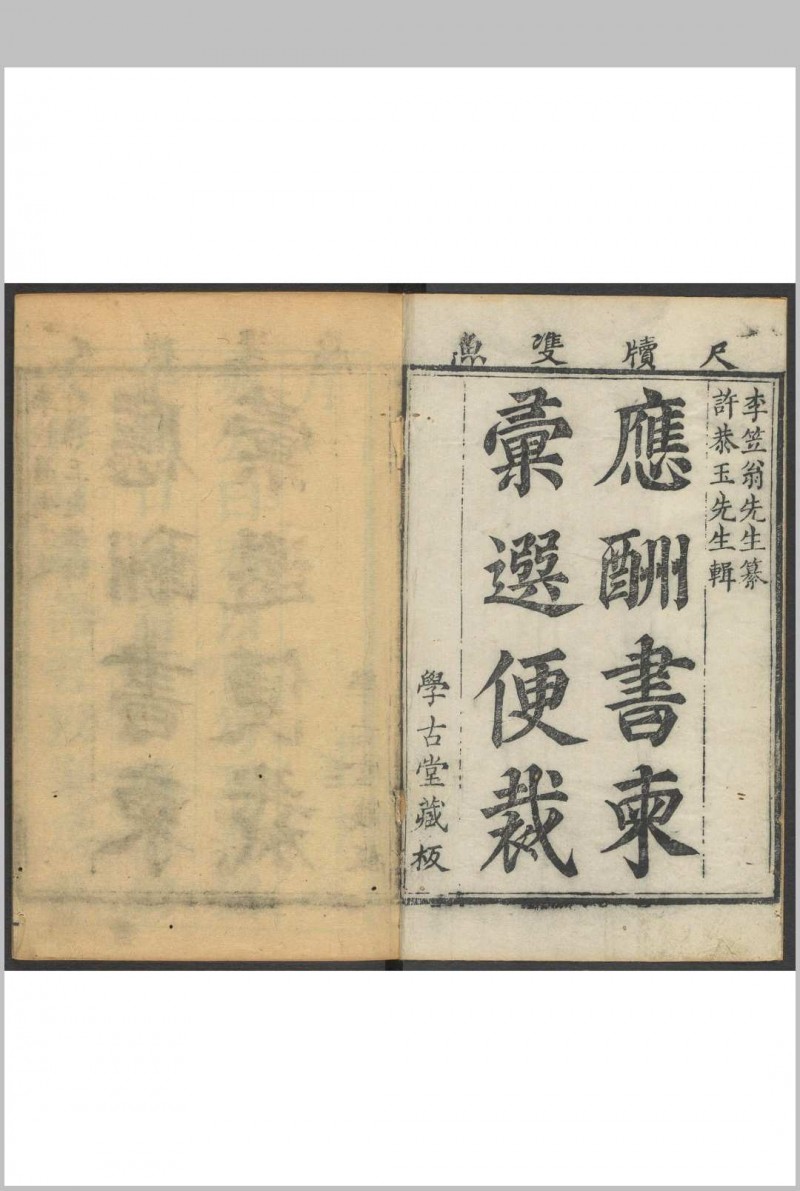 尺牘雙魚
李笠翁先生纂
許恭玉先生輯
應酬書柬
彙選便裁
學古堂藏板